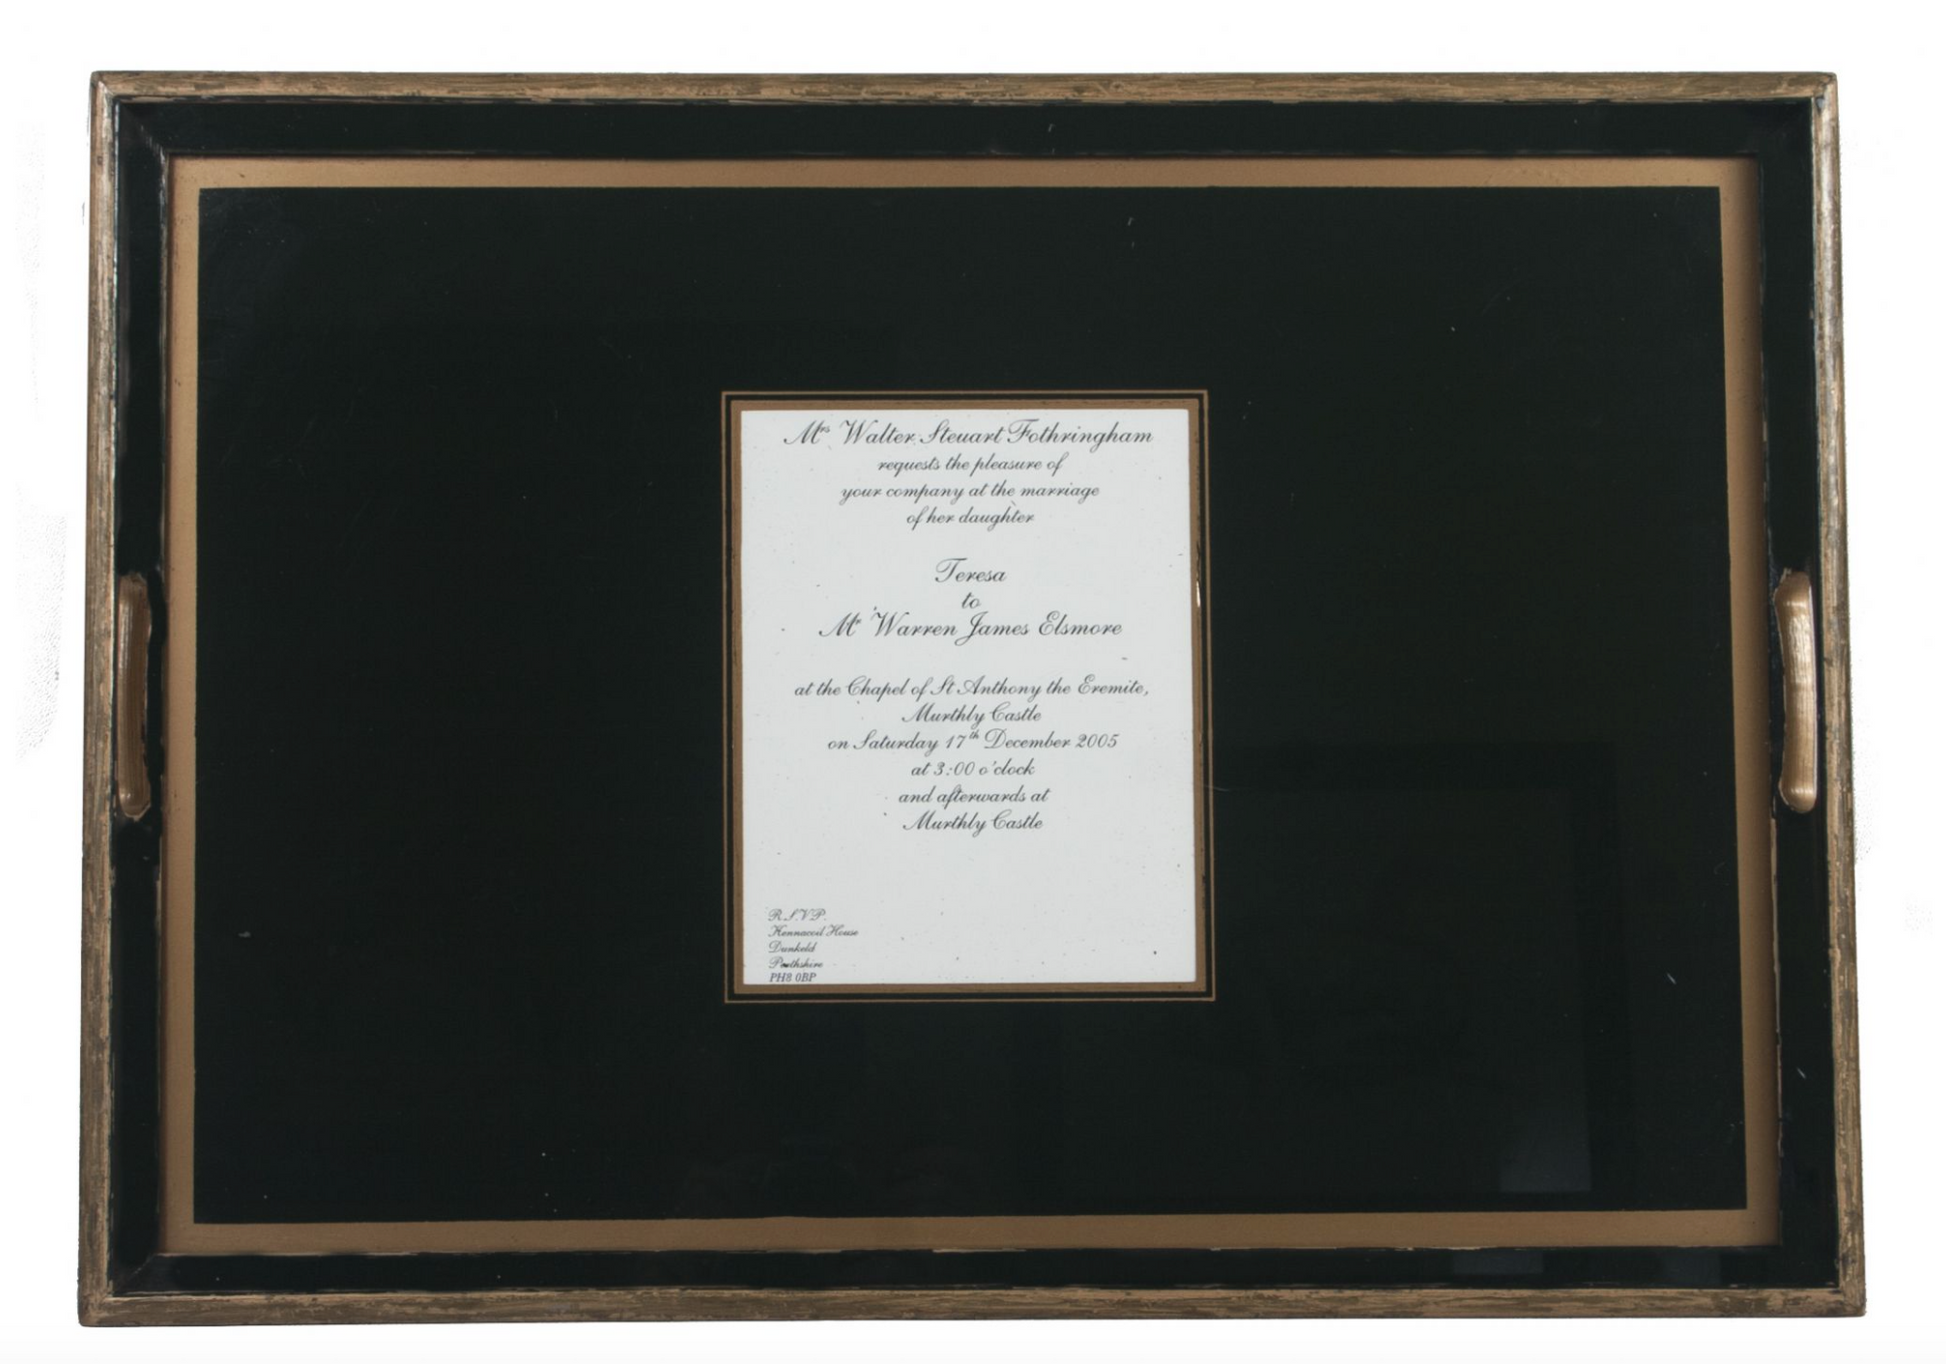 Mrs Walter Steuart Fothringham
requests the pleasure of
your company at the marriage
of her daughter
Teresa
to
Mr Warren James Elsmore
at the Chapel of St Anthony the Eremite,
Murthly Castle
on Saturday 17th December 2005
at 3:00 o'clock
and afterwards at
Murthly Castle
R.S.V.P.
Kennacoil House
Dunkeld
Perthshire
PH8 0BP